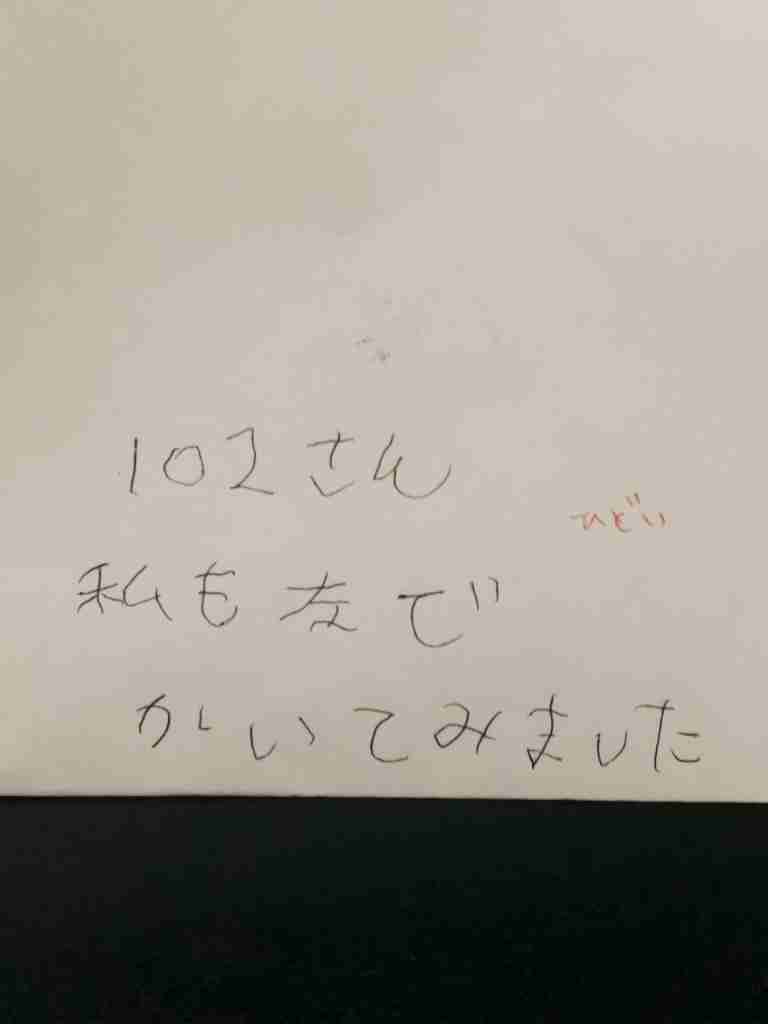 102さん
ひどい
私も左で
かいてみました